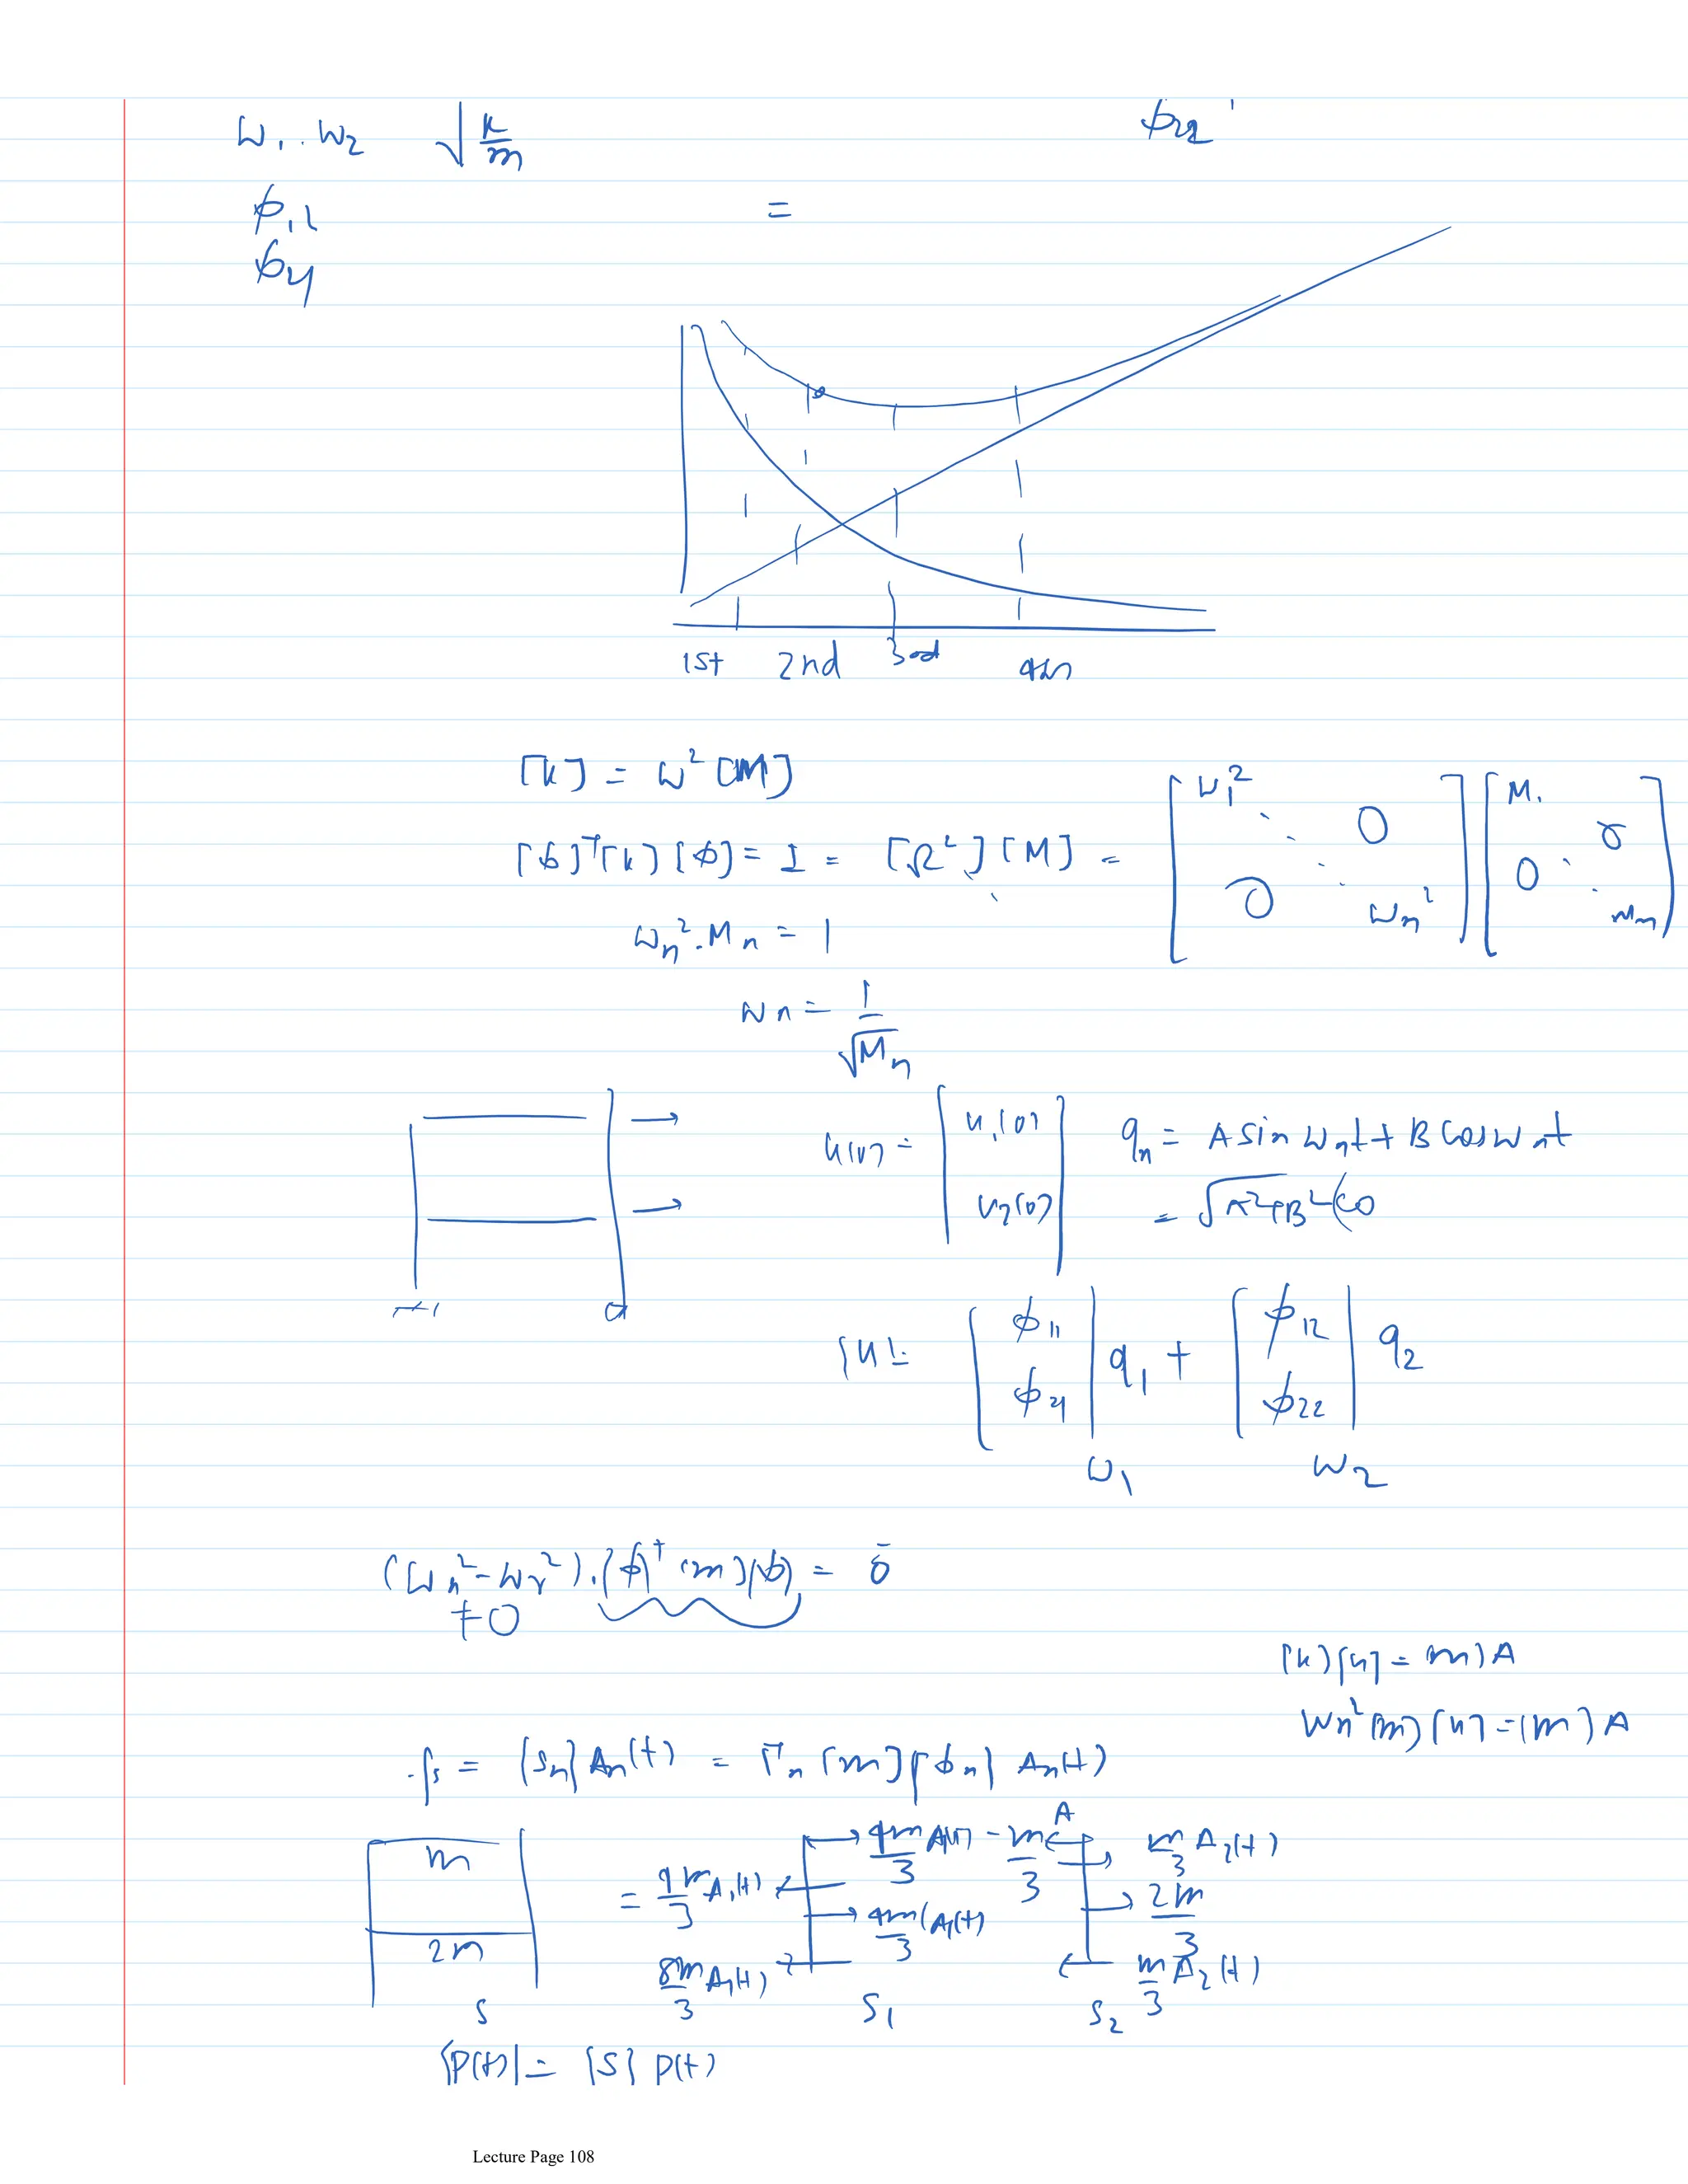 ω₁. ω₂ √(k/m) φ₂₂
φ₁₁ =
φ₂₁
1st 2nd 3rd 4th
[k] = ω² [M]
[φ]ᵀ[k][φ] = I = [Ω²][M] = [ω₁² ⋱ 0 0 ωn²] [M₁ 0 0 ⋱ Mn]
ωn². Mn = 1
ωn = 1/√Mn
u(0) = [u₁(0) u₂(0)] qn = A sin ωnt + B cos ωnt
= √A²+B² (Co
{u} = [φ₁₁ φ₂₁] q₁ + [φ₁₂ φ₂₂] q₂
ω₁ ω₂
(ωn² - ωr²).(φ)ᵀ(m)(φ) = 0
≠0
[k]{u} = m)A
ωn²(m){u} = (m)A
fs = {sn} An(t) = Γn [m]{φn} An(t)
m = 4m/3 A₁(t) 4m/3 A(t) - m/3 A m/3 A₂(t)
2m 8m/3 A₁(t) 4m/3 (A₁(t) 2m/3 m/3 A₂(t)
S S₁ S₂
{P(t)} = {S} P(t)
Lecture Page 108